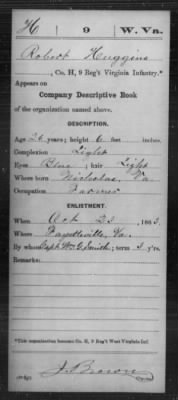 H 9 W. Vn.
Robert Huggins
, Co. H, 9 Reg't Virginia Infantry.*
Appears on
Company Descriptive Book
of the organization named above.
DESCRIPTION.
Age 26 years; height 6 feet inches.
Complexion Light
Eyes Blue; hair Light
Where born Nicholas, Va.
Occupation Farmer
ENLISTMENT.
When Oct 23, 186
Where Fayetteville, Va.
By whom Capt. Wm G. Smith; term 3 y'rs.
Remarks:
*This organization became Co. H, 9 Reg't West Virginia Inf.
J. Brown